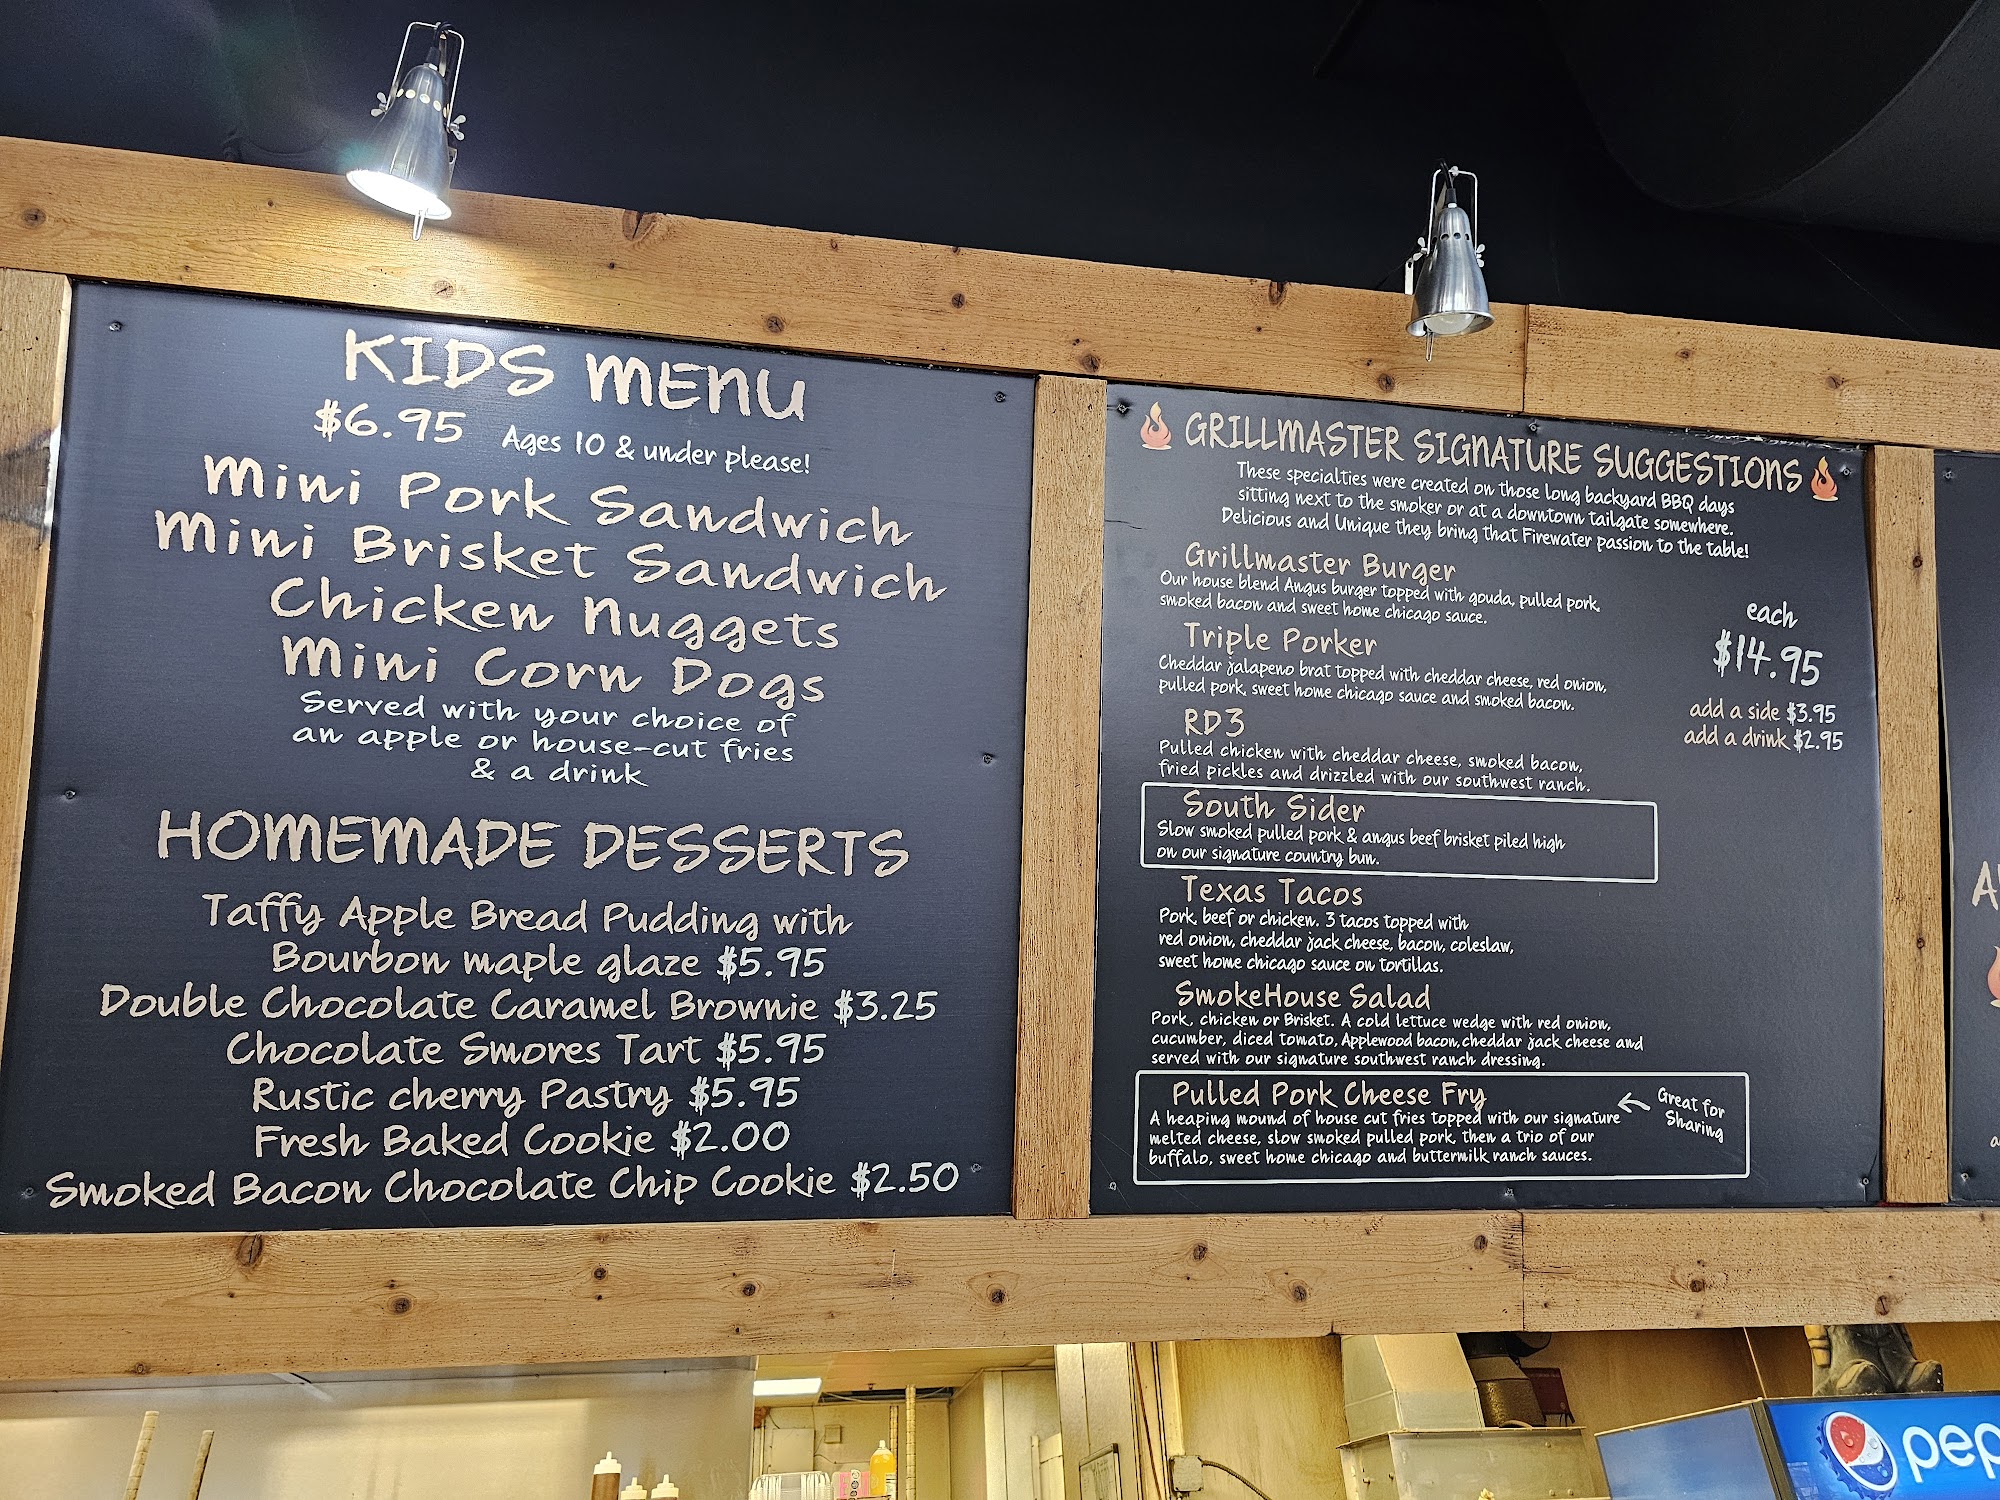 KIDS MENU
$6.95 Ages 10 & under please!
Mini Pork Sandwich
Mini Brisket Sandwich
Chicken Nuggets
Mini Corn Dogs
Served with your choice of
an apple or house-cut fries
& a drink
HOMEMADE DESSERTS
Taffy Apple Bread Pudding with
Bourbon maple glaze $5.95
Double Chocolate Caramel Brownie $3.25
Chocolate Smores Tart $5.95
Rustic cherry Pastry $5.95
Fresh Baked Cookie $2.00
Smoked Bacon Chocolate Chip Cookie $2.50
GRILLMASTER SIGNATURE SUGGESTIONS
These specialties were created on those long backyard BBQ days
sitting next to the smoker or at a downtown tailgate somewhere.
Delicious and Unique they bring that Firewater passion to the table!
Grillmaster Burger
Our house blend Angus burger topped with gouda, pulled pork,
smoked bacon and sweet home chicago sauce.
Triple Porker
Cheddar jalapeno brat topped with cheddar cheese, red onion,
pulled pork, sweet home chicago sauce and smoked bacon.
RD3
Pulled chicken with cheddar cheese, smoked bacon,
fried pickles and drizzled with our southwest ranch.
South Sider
Slow smoked pulled pork & angus beef brisket piled high
on our signature country bun.
Texas Tacos
Pork, beef or chicken. 3 tacos topped with
red onion, cheddar jack cheese, bacon, coleslaw,
sweet home chicago sauce on tortillas.
SmokeHouse Salad
Pork, chicken or Brisket. A cold lettuce wedge with red onion,
cucumber, diced tomato, Applewood bacon, cheddar jack cheese and
served with our signature southwest ranch dressing.
Pulled Pork Cheese Fry
A heaping mound of house cut fries topped with our signature
melted cheese, slow smoked pulled pork, then a trio of our
buffalo, sweet home chicago and buttermilk ranch sauces.
Great for
Sharing
each
$14.95
add a side $3.95
add a drink $2.95
pep